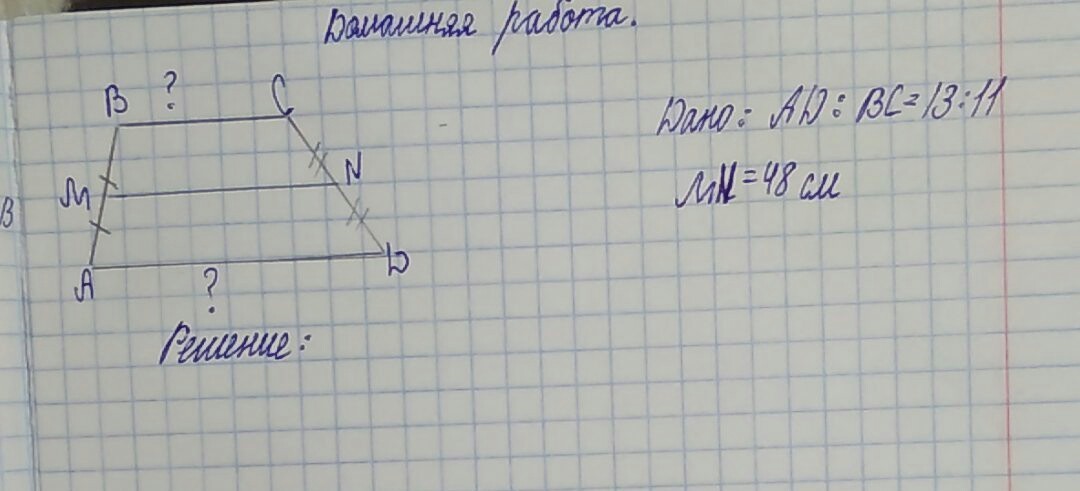 Домашняя работа.
B ? C
Дано: AD : BC = 13:11
M N
MN = 48 см
В
A ? D
Решение: